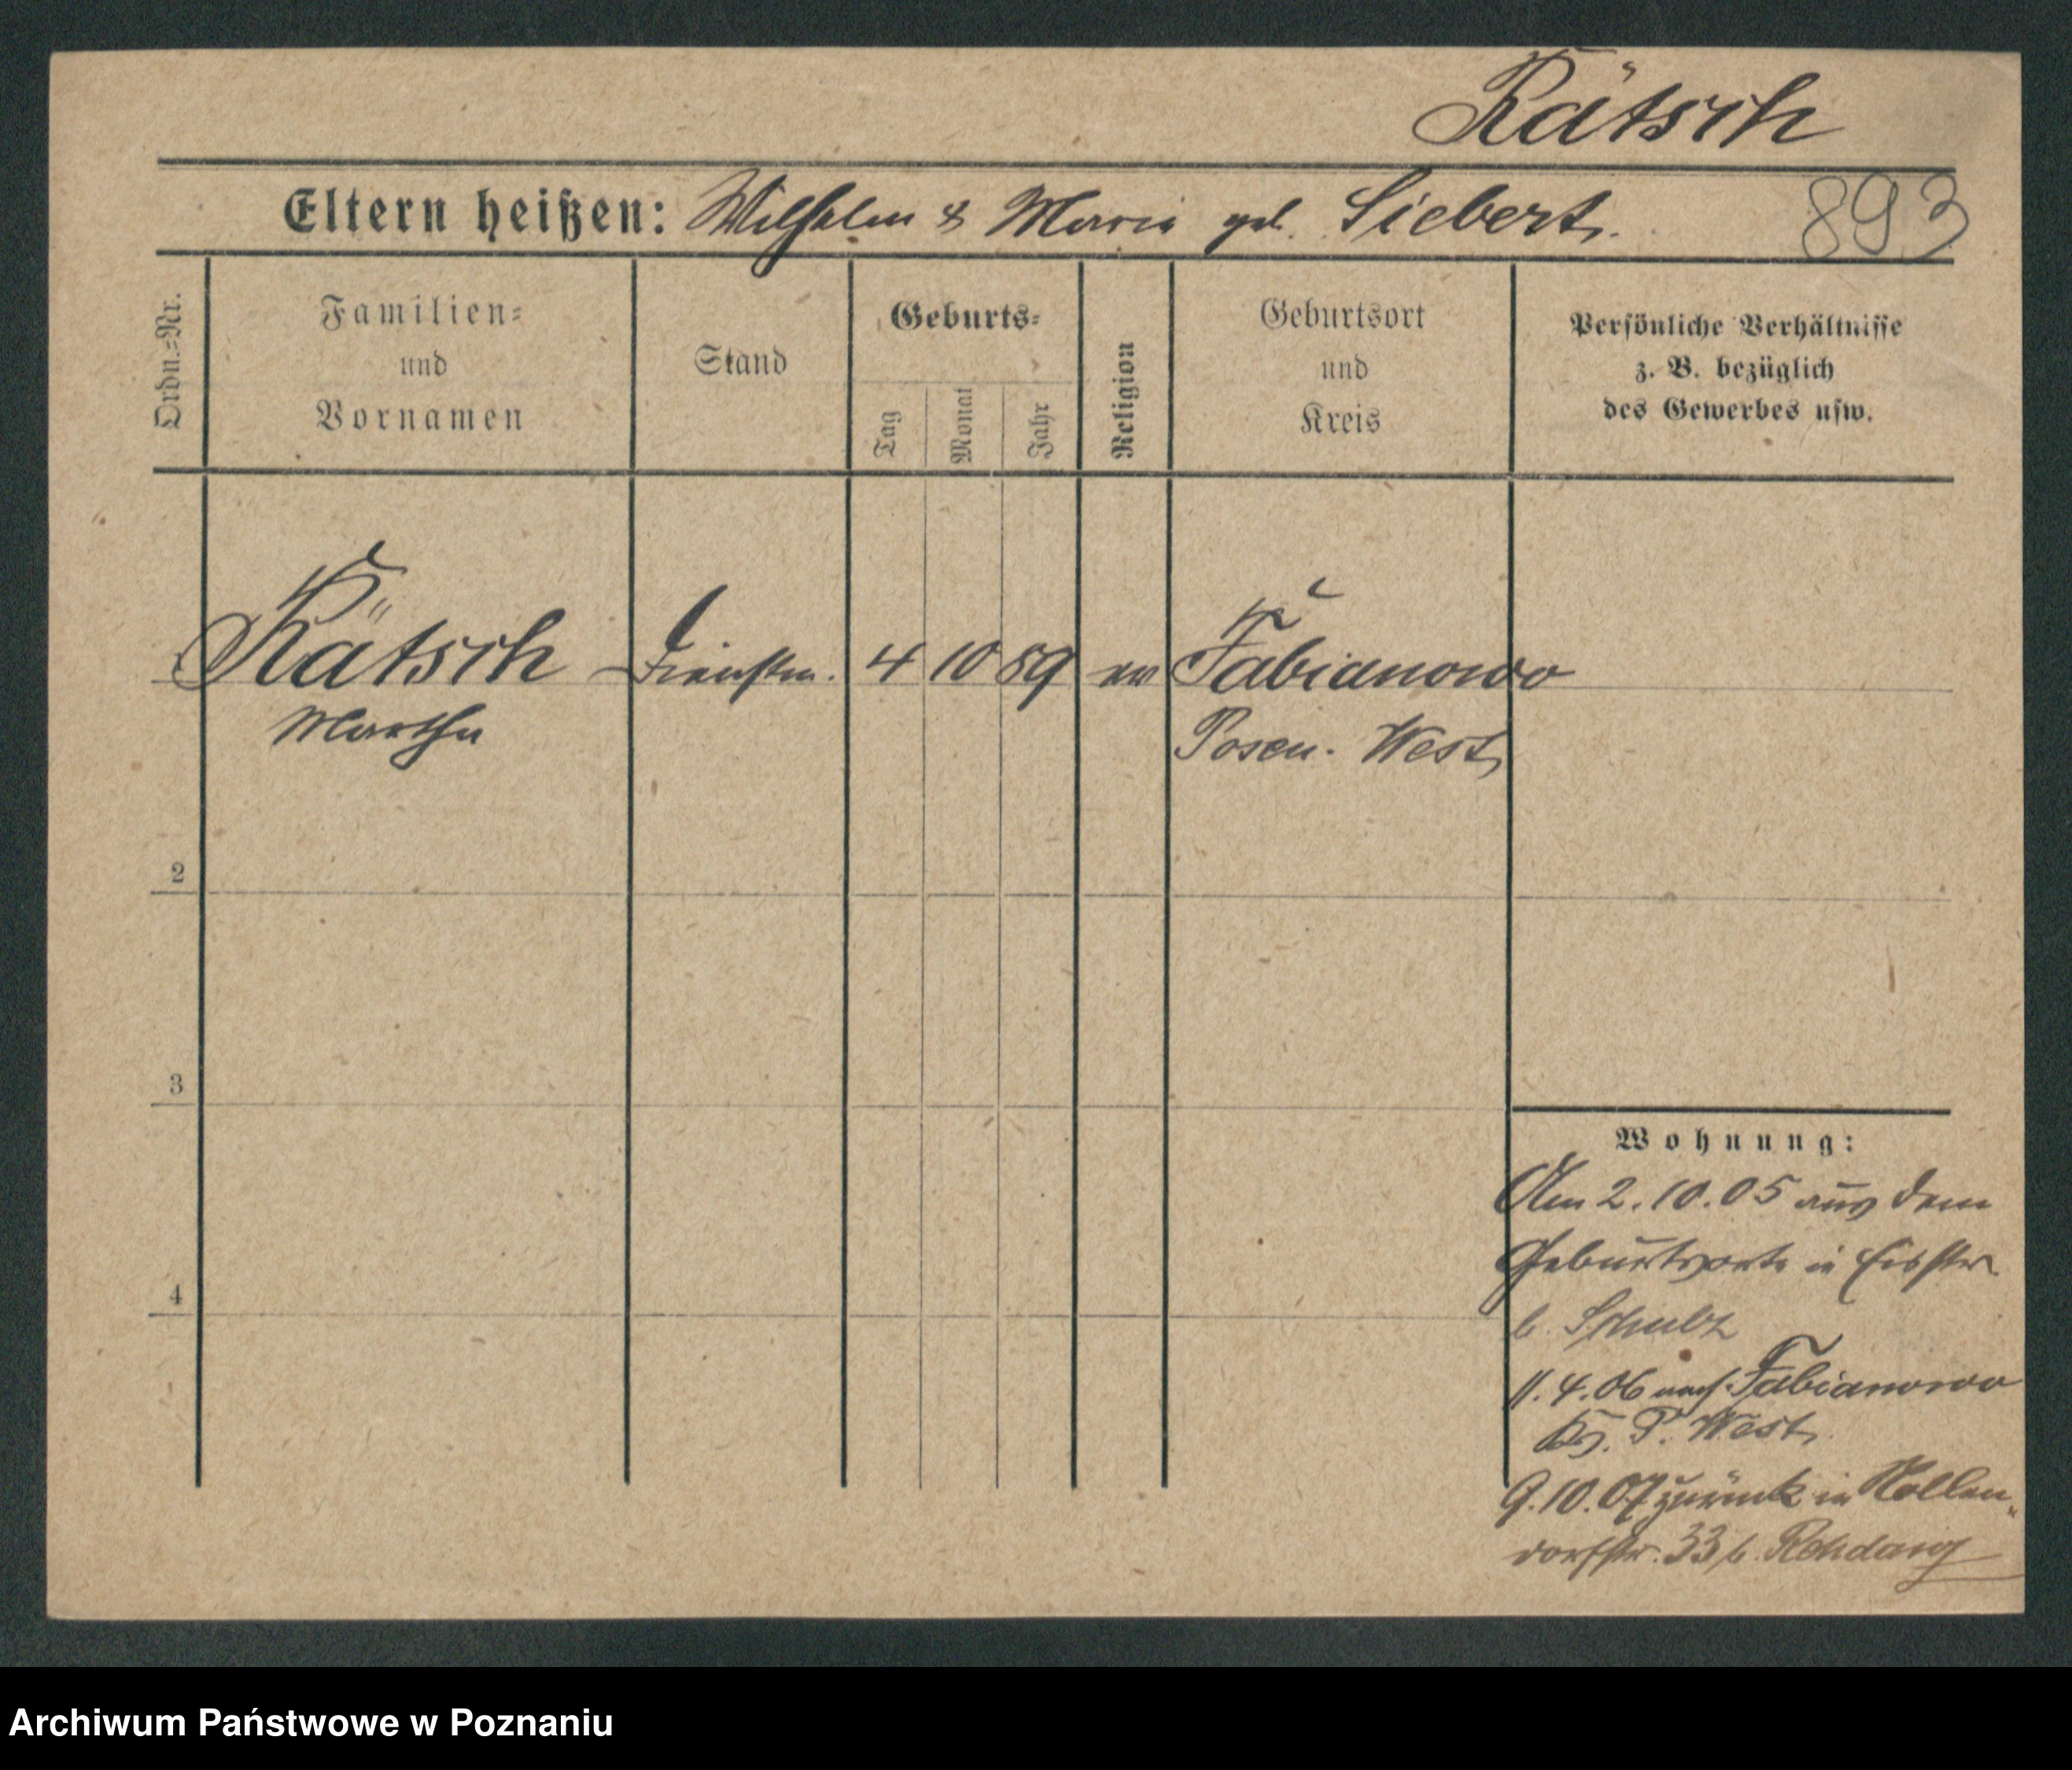 Rätsch
Eltern heißen: Wilhelm & Maria geb. Siebert.
893
Ordn.-Nr.
Familien-
und
Vornamen
Stand
Geburts-
Tag
Monat
Jahr
Religion
Geburtsort
und
Kreis
Persönliche Verhältnisse
z. B. bezüglich
des Gewerbes usw.
Rätsch Dienstm. 4 10 89 ev Fabianowo
Martha Posen. West
2
3
4
Wohnung:
Am 2.10.05 aus dem
Geburtsorte in
b. Schulz
11.4.06 nach Fabianowo
Krs. P. West.
9.10.07 zurück in Kollen-
dorfstr. 33 b.
Archiwum Państwowe w Poznaniu